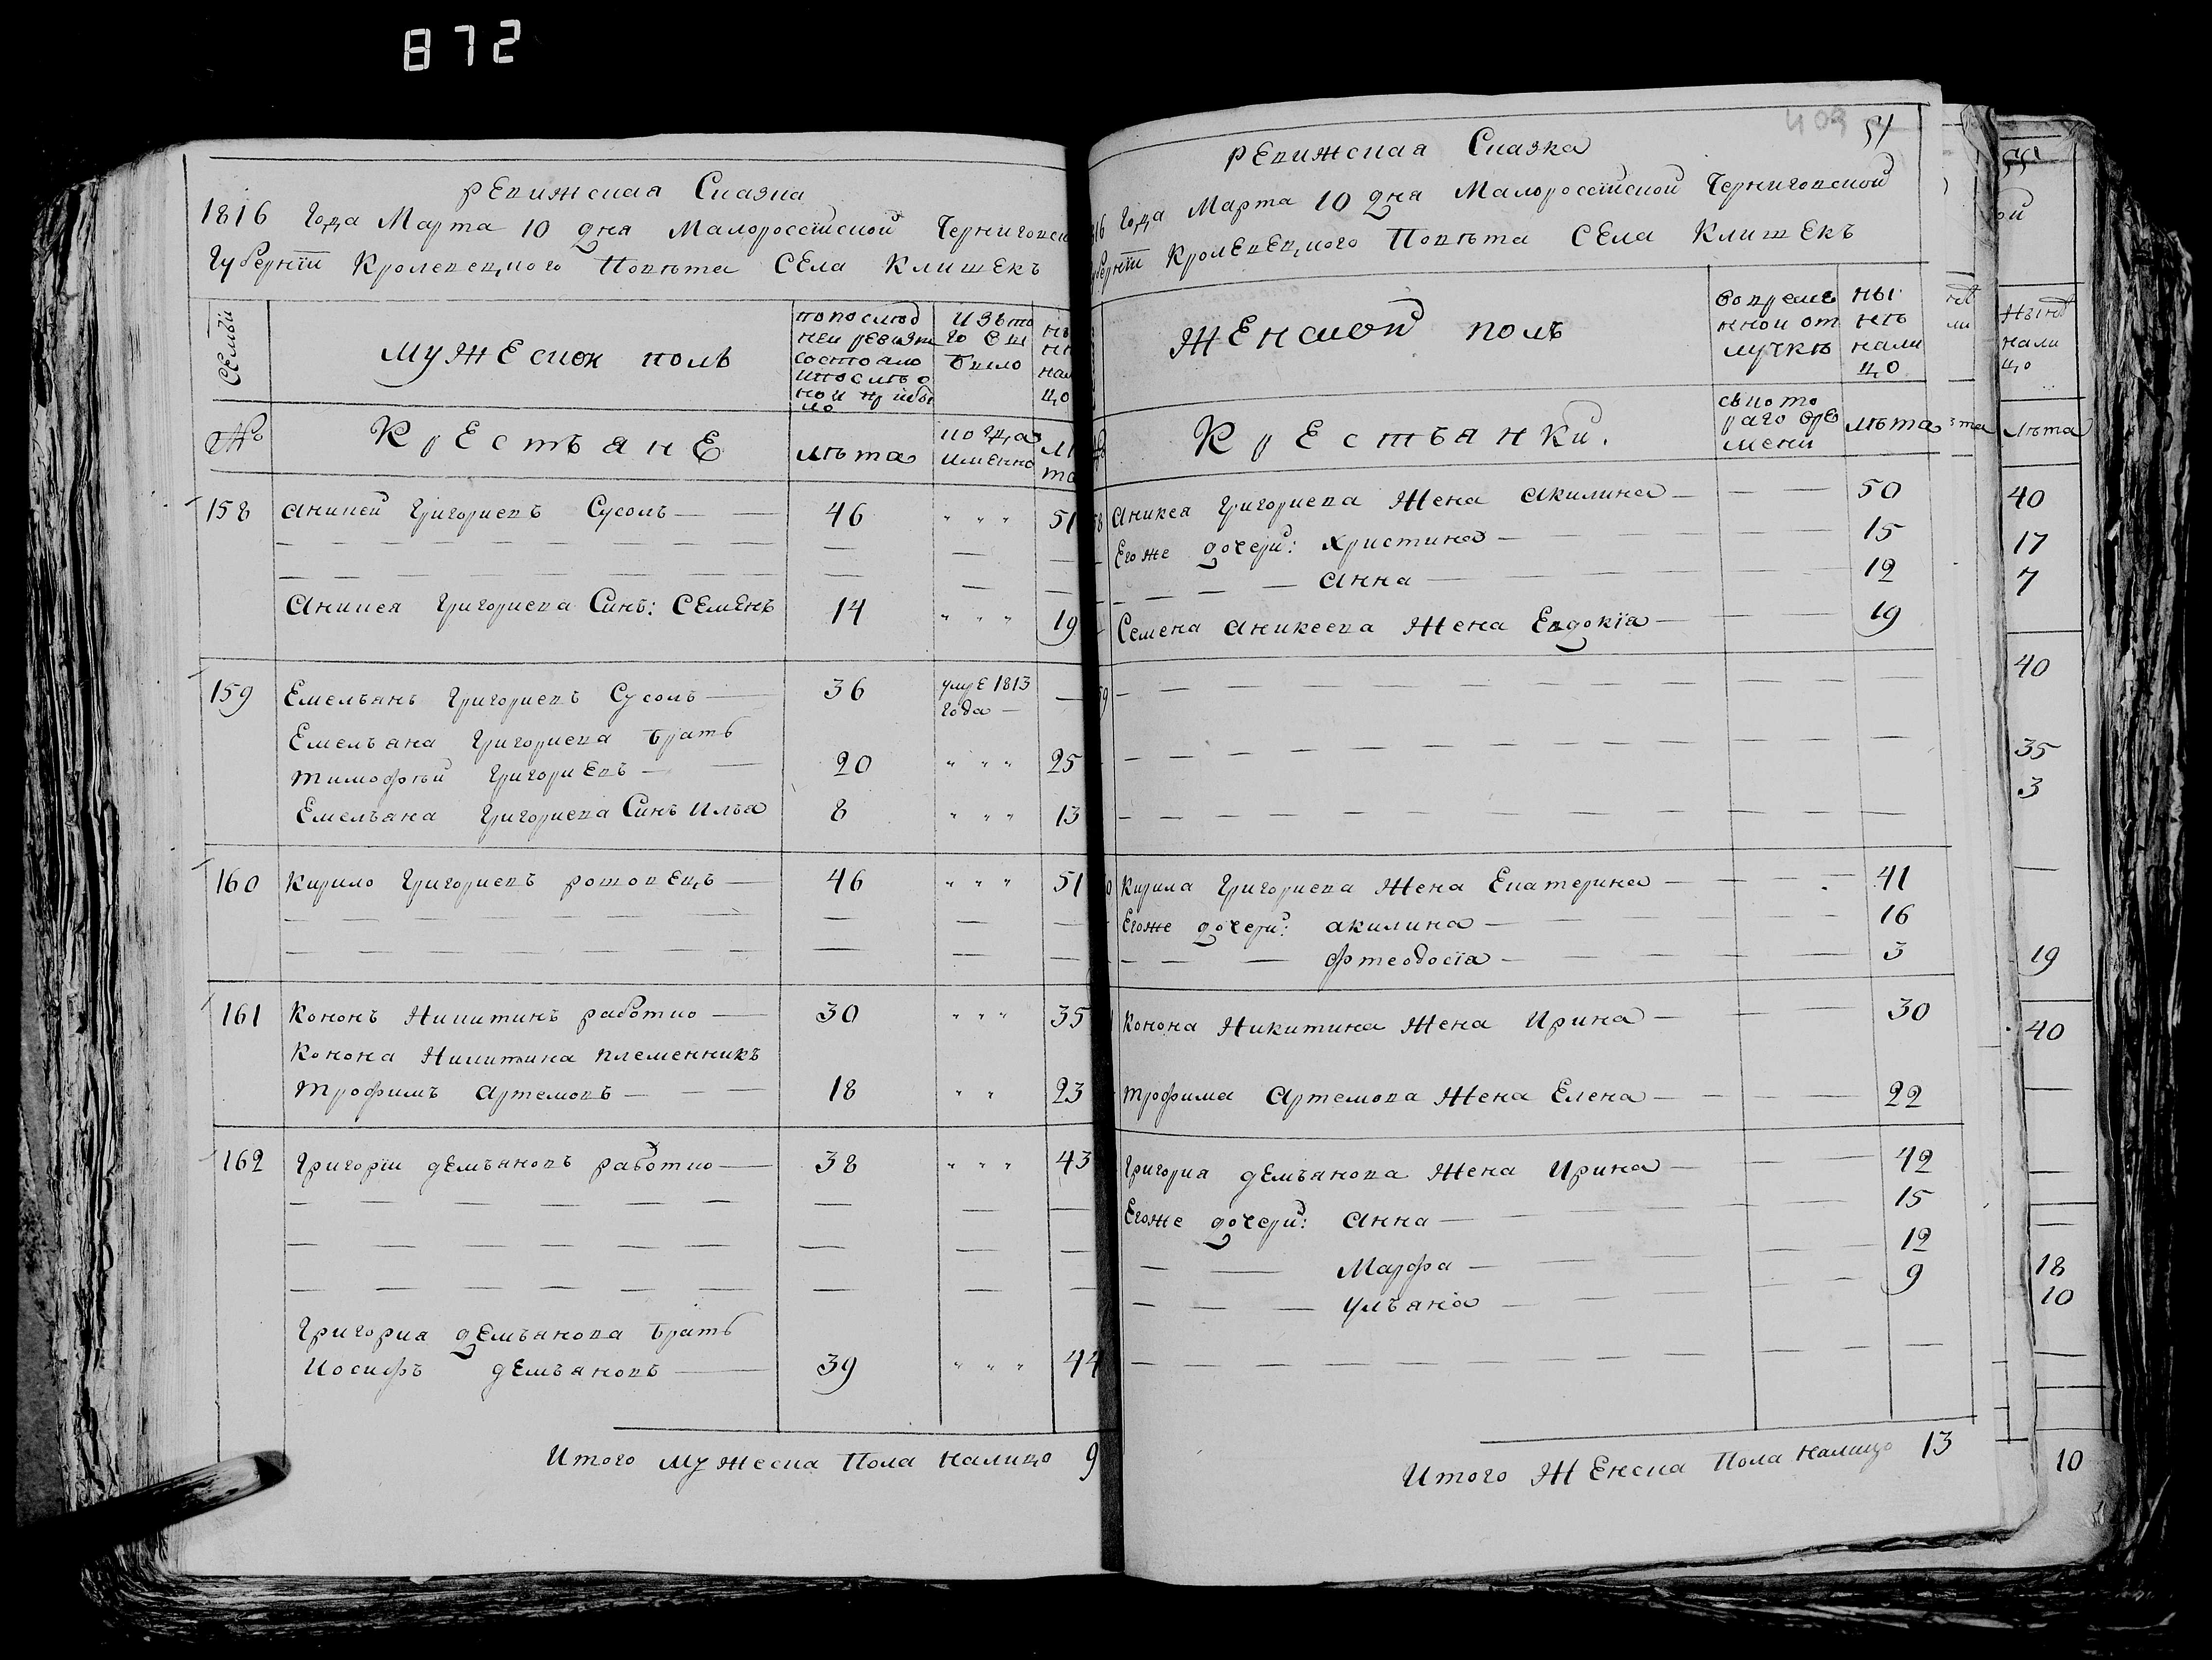 872
рЕвижская Сказка
1816 Года Марта 10 дня Малороссїйской Чернигопск
Губернїи Кролевецкого Повѣта СЕла КлишЕкъ
СЕмьи
мужЕскои полъ
по послѣд
неи ревизи
состояло
и послѣ о
нои прибы
ло
изъ то
го вы
было
нали
цо
№
КрЕстъянЕ
лѣта
когда
именно
158 Аникей Григориевъ Сусолъ — — 46 " " " 51
Аникея Григориева Синъ: СЕмЕнъ 14 " " " 19
159 Емельянъ Григориевъ Сусолъ — 36 умрЕ 1813 —
года —
Емельяна Григориева братъ
тимофѣй ГригориЕвъ — — 20 " " " 25
Емельяна Григориева Синъ Илья 8 " " " 13
160 Кирило Григориевъ рошовЕцъ — 46 " " " 51
161 Кононъ Никитинъ работко — 30 " " " 35
Конона Никитина племенникъ
трофимъ Артемовъ — — 18 " " 23
162 Григорїи дЕмьяновъ работко — 38 " " " 43
Григория дЕмьянова братъ
Иосифъ дЕмьяновъ — 39 " " " 44
Итого мужеска Пола налицо 9
409 54
рЕвижская Сказка
16 Года Марта 10 дня Малороссїйской Черниговской
Губернїи КролЕвЕцкого Повѣта СЕла КлишЕкъ
ЖЕнской полъ
во време
нной от
лучкѣ
ны
нѣ
нали
цо
КрЕстъянки.
съ кото
раго вре
мени
лѣта
58 Аникея Григориева Жена Акилина — — — 50
Егоже дочери: Христина — 15
— Анна — 12
Семена Аникеева Жена Евдокїя — 19
59
0 Кирила Григориева Жена Екатерина — 41
Егоже дочери: акилина — 16
— фтеодосїя — 3
Конона Никитина Жена Ирина — 30
трофима Артемова Жена Елена — 22
Григория дЕмьянова Жена Ирина — 42
Егоже дочери: Анна — 15
— Марфа — 12
— улъяна — 9
Итого ЖЕнска Пола налицо 13
55
ой
Нынѣ
нали
цо
лѣта
40
17
7
40
35
3
19
40
18
10
10